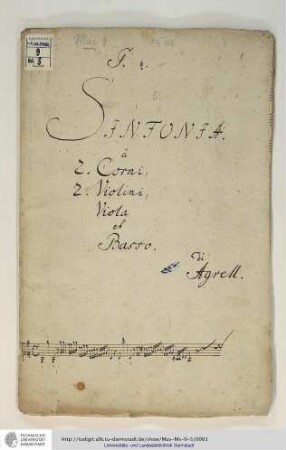 Mus 9
9
5
F.
SINFONIA.
à
2. Corni,
2. Violini,
Viola
et
Basso.
di
Agrell.
TECHNISCHE
UNIVERSITÄT
DARMSTADT
http://tudigit.ulb.tu-darmstadt.de/show/Mus-Ms-9-5/0001
Universitäts- und Landesbibliothek Darmstadt